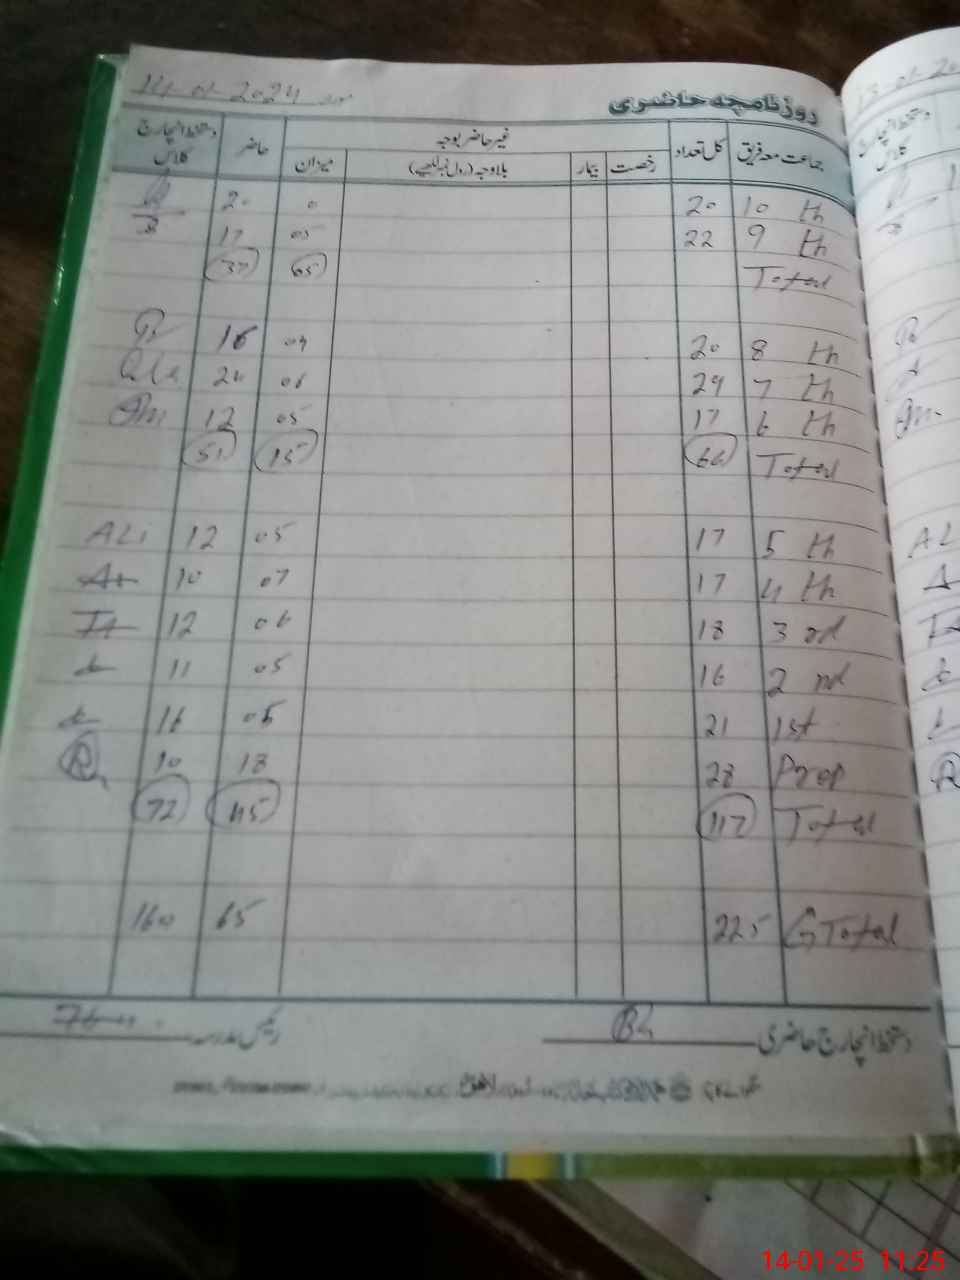 روزنامچہ حاضری
مورخہ 14-01-2024
جماعت معہ فریق کل تعداد غیر حاضر بوجہ حاضر دستخط انچارج کلاس
رخصت بیمار بلاوجہ (رول نمبر لکھیے) میزان
10 th 20 0 20
9 th 22 05 17
Total 37
8 th 20 04 16
7 th 29 06 24
6 th 17 05 12
Total 66 15 51
5 th 17 05 12 ALI
4 th 17 07 10
3 rd 18 06 12
2 nd 16 05 11
1st 21 05 16
Prep 28 18 10
Total 117 45 72
G Total 225 65 160
دستخط انچارج حاضری رئیس مدرسہ
13-01-20
دستخط انچارج کلاس
14-01-25 11:25